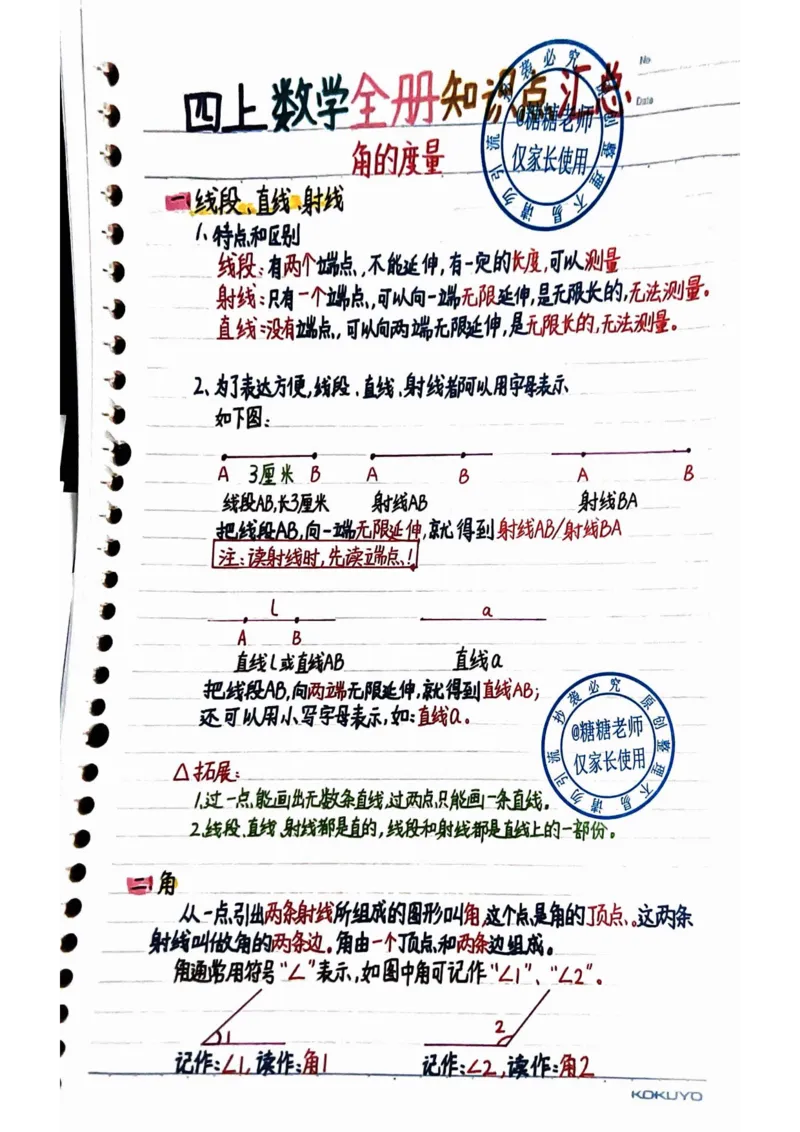 No.
四上数学全册知识点汇总
Date
角的度量
抄袭必究 原创整理不易请勿引流
@糖糖老师
仅家长使用
一、线段、直线、射线
1、特点和区别
线段:有两个端点,不能延伸,有一定的长度,可以测量
射线:只有一个端点,可以向一端无限延伸,是无限长的,无法测量。
直线:没有端点,可以向两端无限延伸,是无限长的,无法测量。
2、为了表达方便,线段、直线、射线都可以用字母表示
如下图:
A 3厘米 B A B A B
线段AB,长3厘米 射线AB 射线BA
把线段AB,向一端无限延伸,就得到射线AB/射线BA
注:读射线时,先读端点!
l a
A B
直线l或直线AB 直线a
把线段AB,向两端无限延伸,就得到直线AB;
还可以用小写字母表示,如:直线a。
抄袭必究 原创整理不易请勿引流
@糖糖老师
仅家长使用
△拓展:
1.过一点,能画出无数条直线,过两点,只能画一条直线。
2.线段、直线、射线都是直的,线段和射线都是直线上的一部份。
二、角
从一点引出两条射线所组成的图形叫角,这个点是角的顶点。这两条
射线叫做角的两条边。角由一个顶点和两条边组成。
角通常用符号“∠”表示,如图中角可记作“∠1”、“∠2”。
1 2
记作:∠1,读作:角1 记作:∠2,读作:角2
KOKUYO